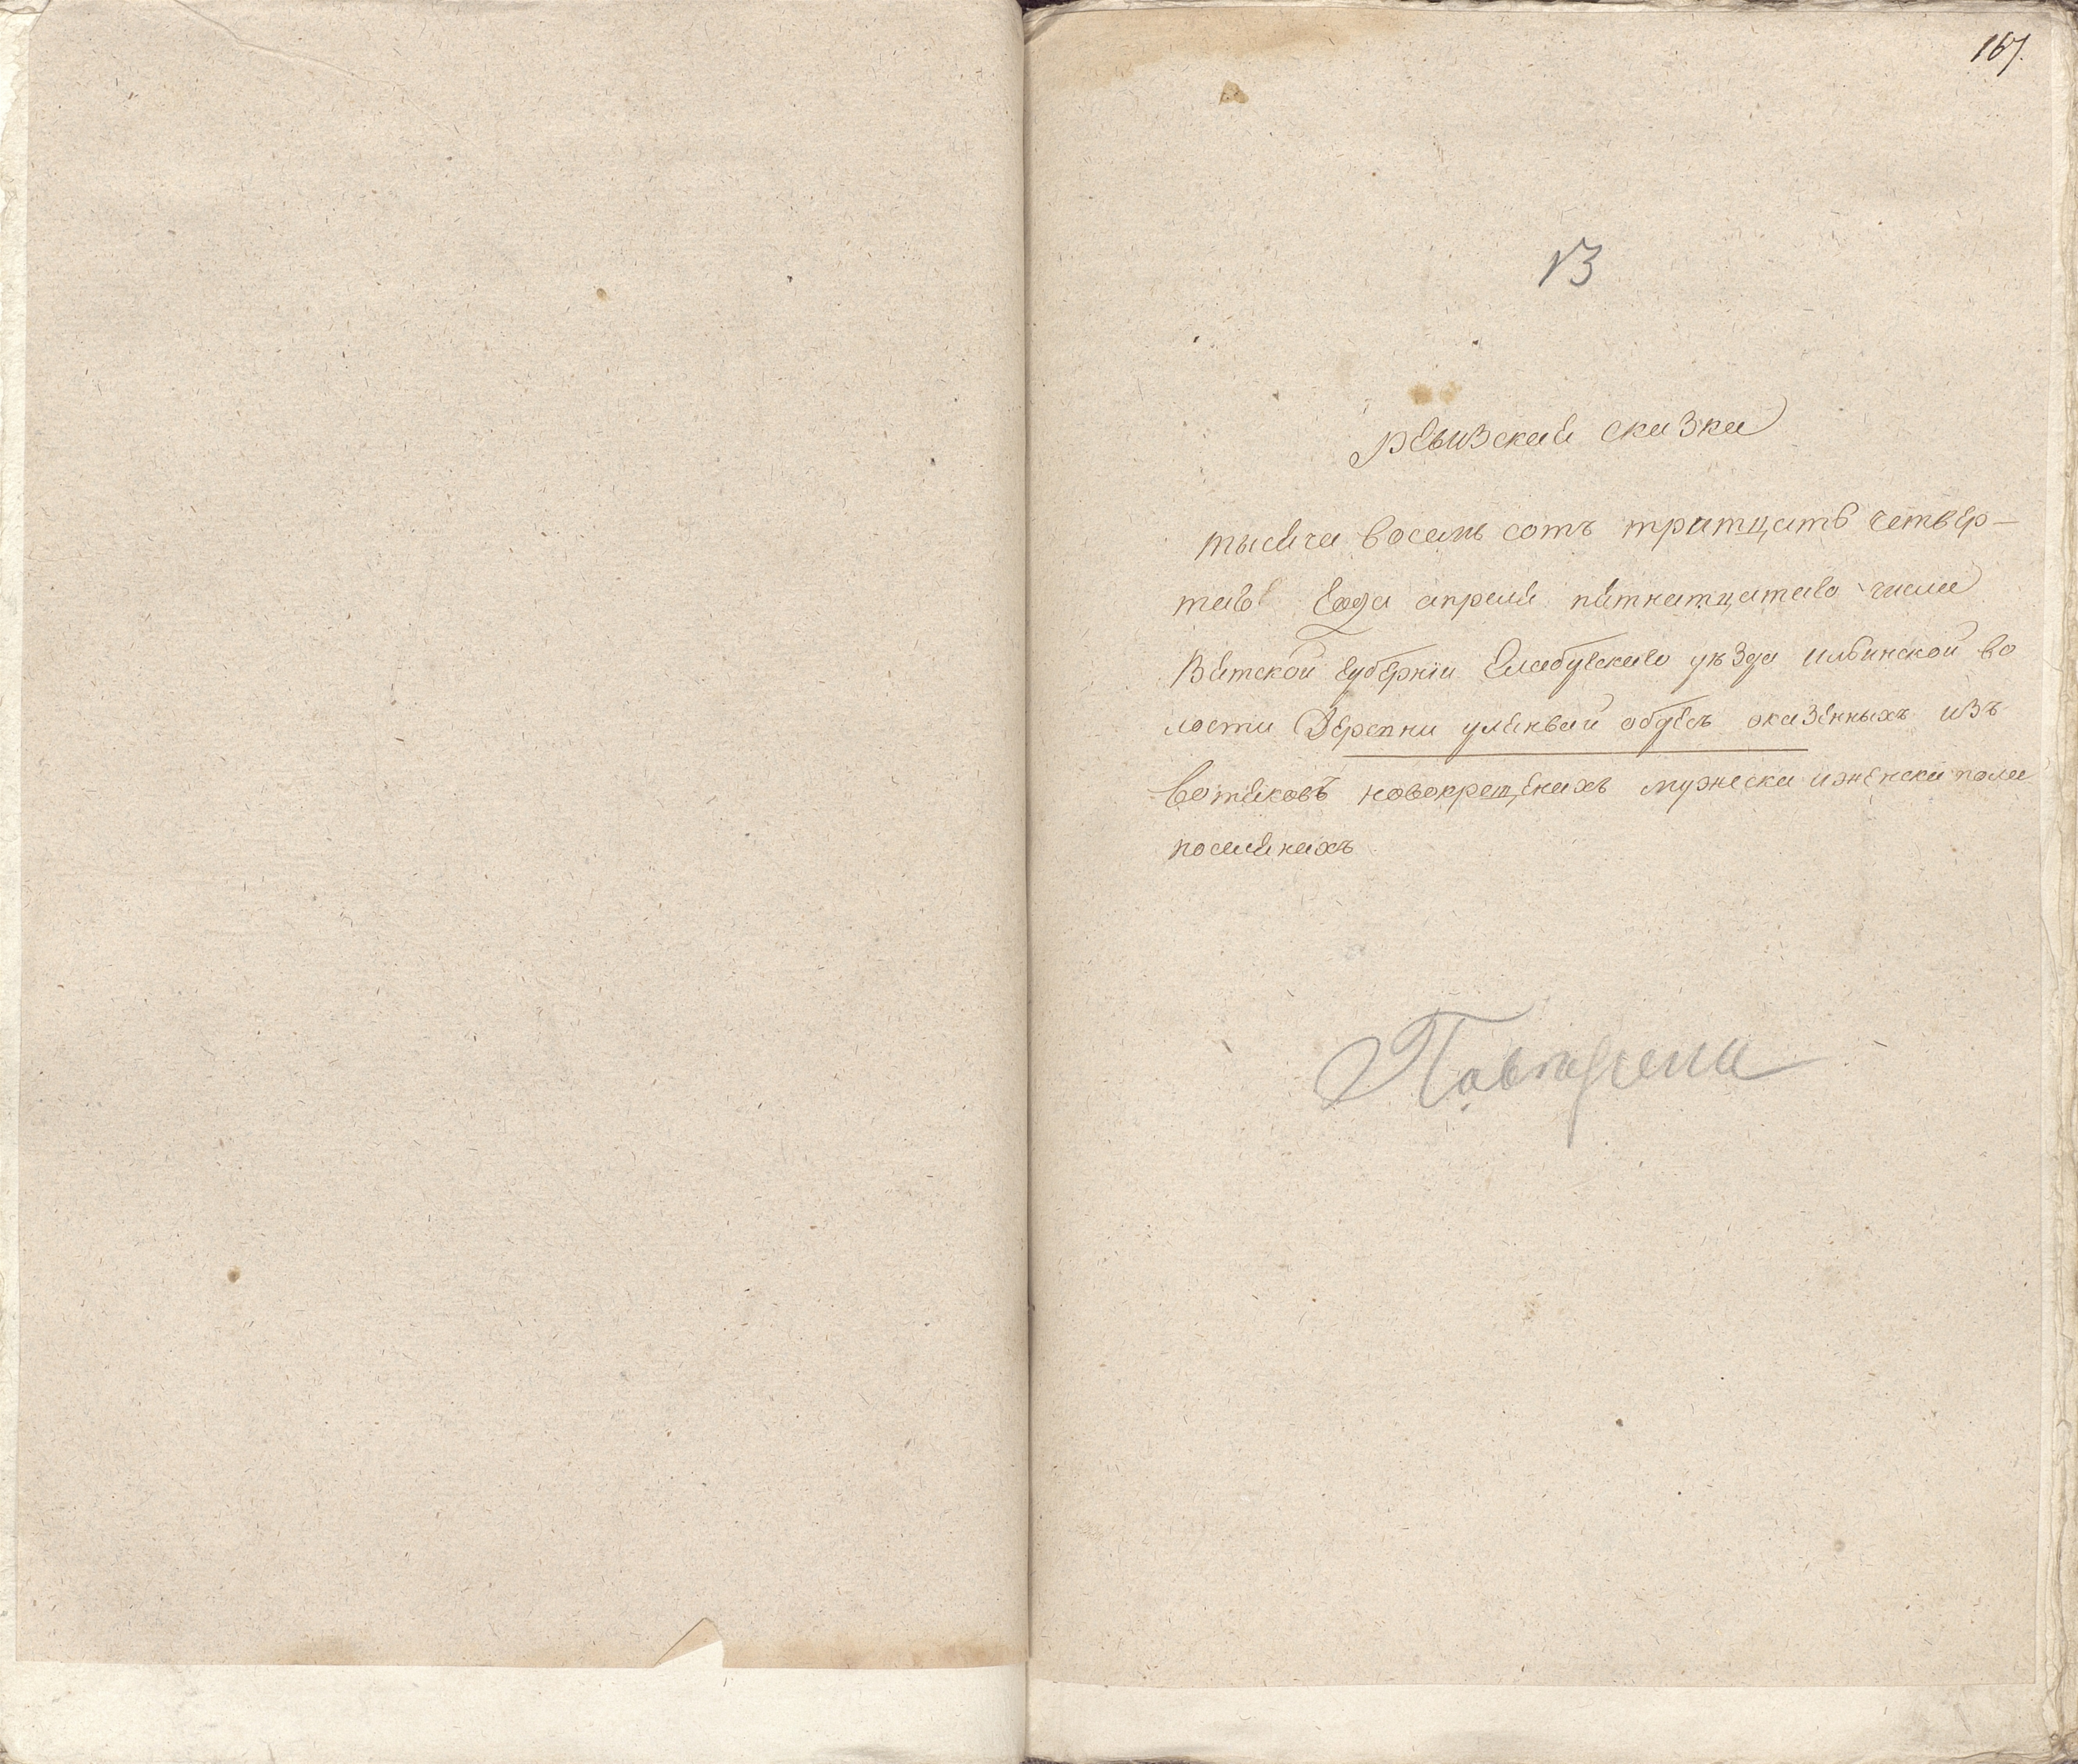 167.
13
ревизская сказка
тысяча восемь сотъ тритцать четвер-
таго года апреля пятнатцатаго числа
Вятской губерніи Елабугскаго уѣзда ильинской во
лости Деревни
оказенныхъ изъ
вотяковъ новокрещеныхъ мужеска иженска пола